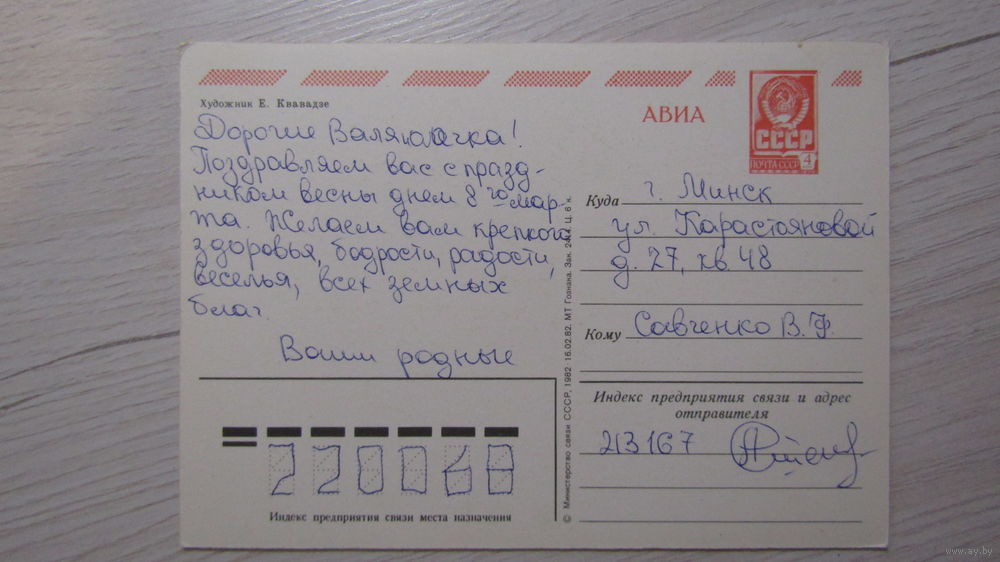 Художник Е. Квавадзе
Дорогие Валя,
Поздравляем вас с празд-
ником весны днем 8го мар-
та. Желаем вам крепкого
здоровья, бодрости, радости,
веселья, всех земных
благ.
Ваши родные
АВИА
СССР
ПОЧТА СССР 4
Куда г. Минск
ул. Карастояновой
д. 27, кв. 48
Кому Савченко В. Ф.
Индекс предприятия связи и адрес
отправителя
213167
220068
Индекс предприятия связи места назначения
© Министерство связи СССР, 1982 16.02.82. МТ Гознака. Зак. Ц. 6 к.
www.ay.by